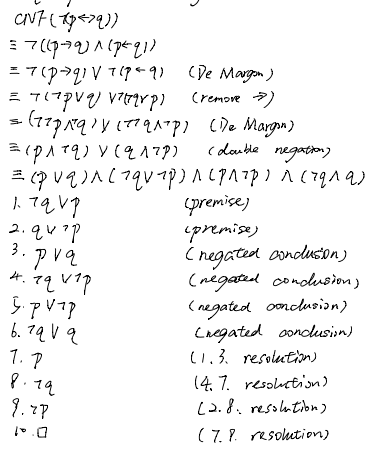 CNF(¬(p↔q))
≡ ¬((p→q) ∧ (p←q))
≡ ¬(p→q) ∨ ¬(p←q) (De Margon)
≡ ¬(¬p∨q) ∨¬(¬q∨p) (remove →)
≡ (¬¬p∧¬q) ∨ (¬¬q∧¬p) (De Margon)
≡ (p∧¬q) ∨ (q∧¬p) (double negation)
≡ (p∨q) ∧ (¬q∨¬p) ∧ (p∧¬p) ∧ (¬q∧q)
1. ¬q∨p (premise)
2. q∨¬p (premise)
3. p∨q (negated conclusion)
4. ¬q∨¬p (negated conclusion)
5. p∨¬p (negated conclusion)
6. ¬q∨q (negated conclusion)
7. p (1.3. resolution)
8. ¬q (4.7. resolution)
9. ¬p (2.8. resolution)
10. □ (7.9. resolution)